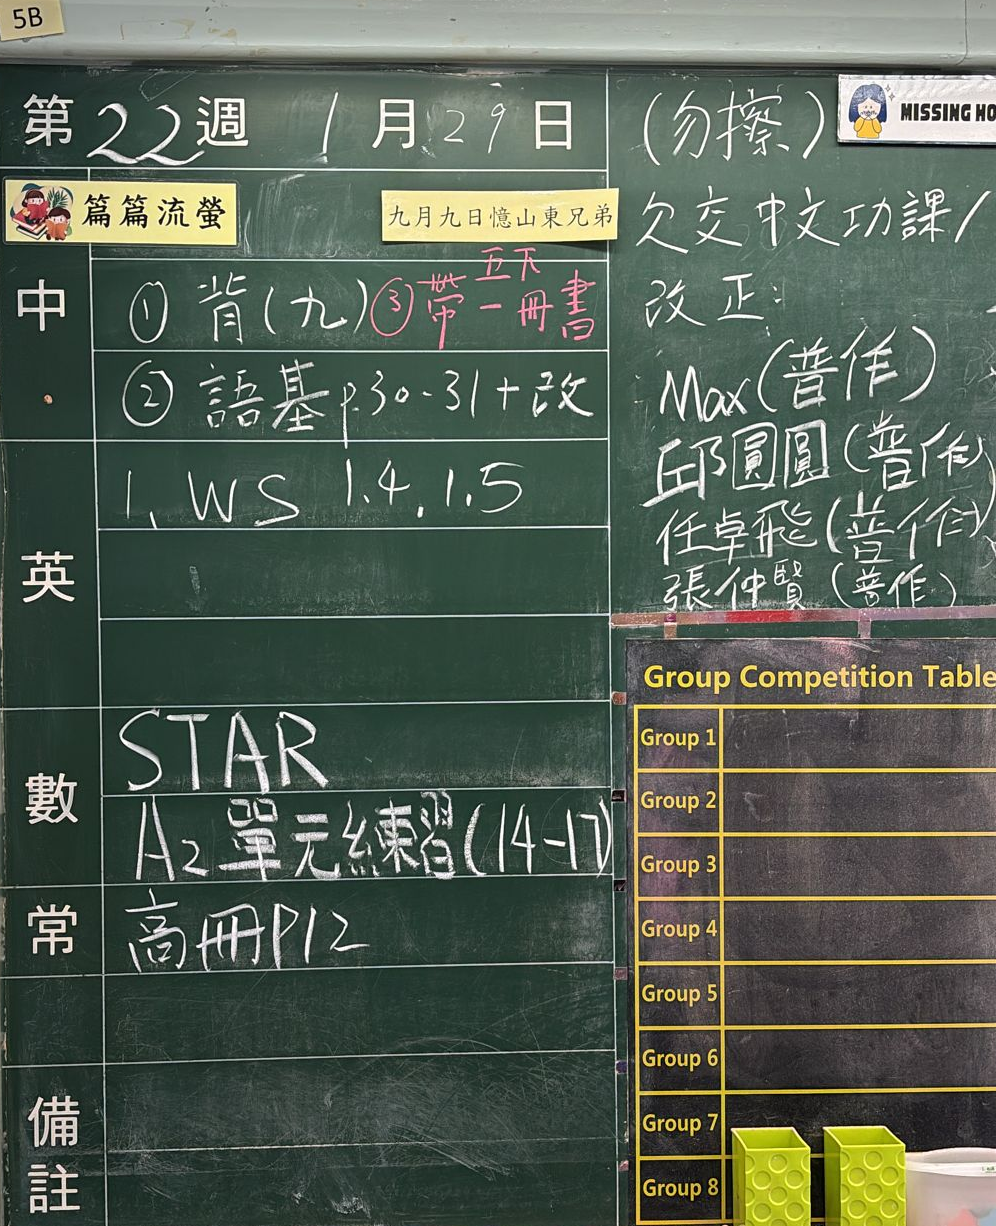 5B
第22週 1月29日
篇篇流螢 九月九日憶山東兄弟
中
① 背(九) ③帶一冊書
五下
② 語基p.30-31+改
英
1. WS 1.4, 1.5
數
STAR
A2單元練習(14-17)
常
高冊P12
備註
(勿擦)
MISSING HO
欠交中文功課/
改正:
Max(普作)
邱圓圓(普作)
任卓飛(普作)
張仲賢(普作)
Group Competition Table
Group 1
Group 2
Group 3
Group 4
Group 5
Group 6
Group 7
Group 8